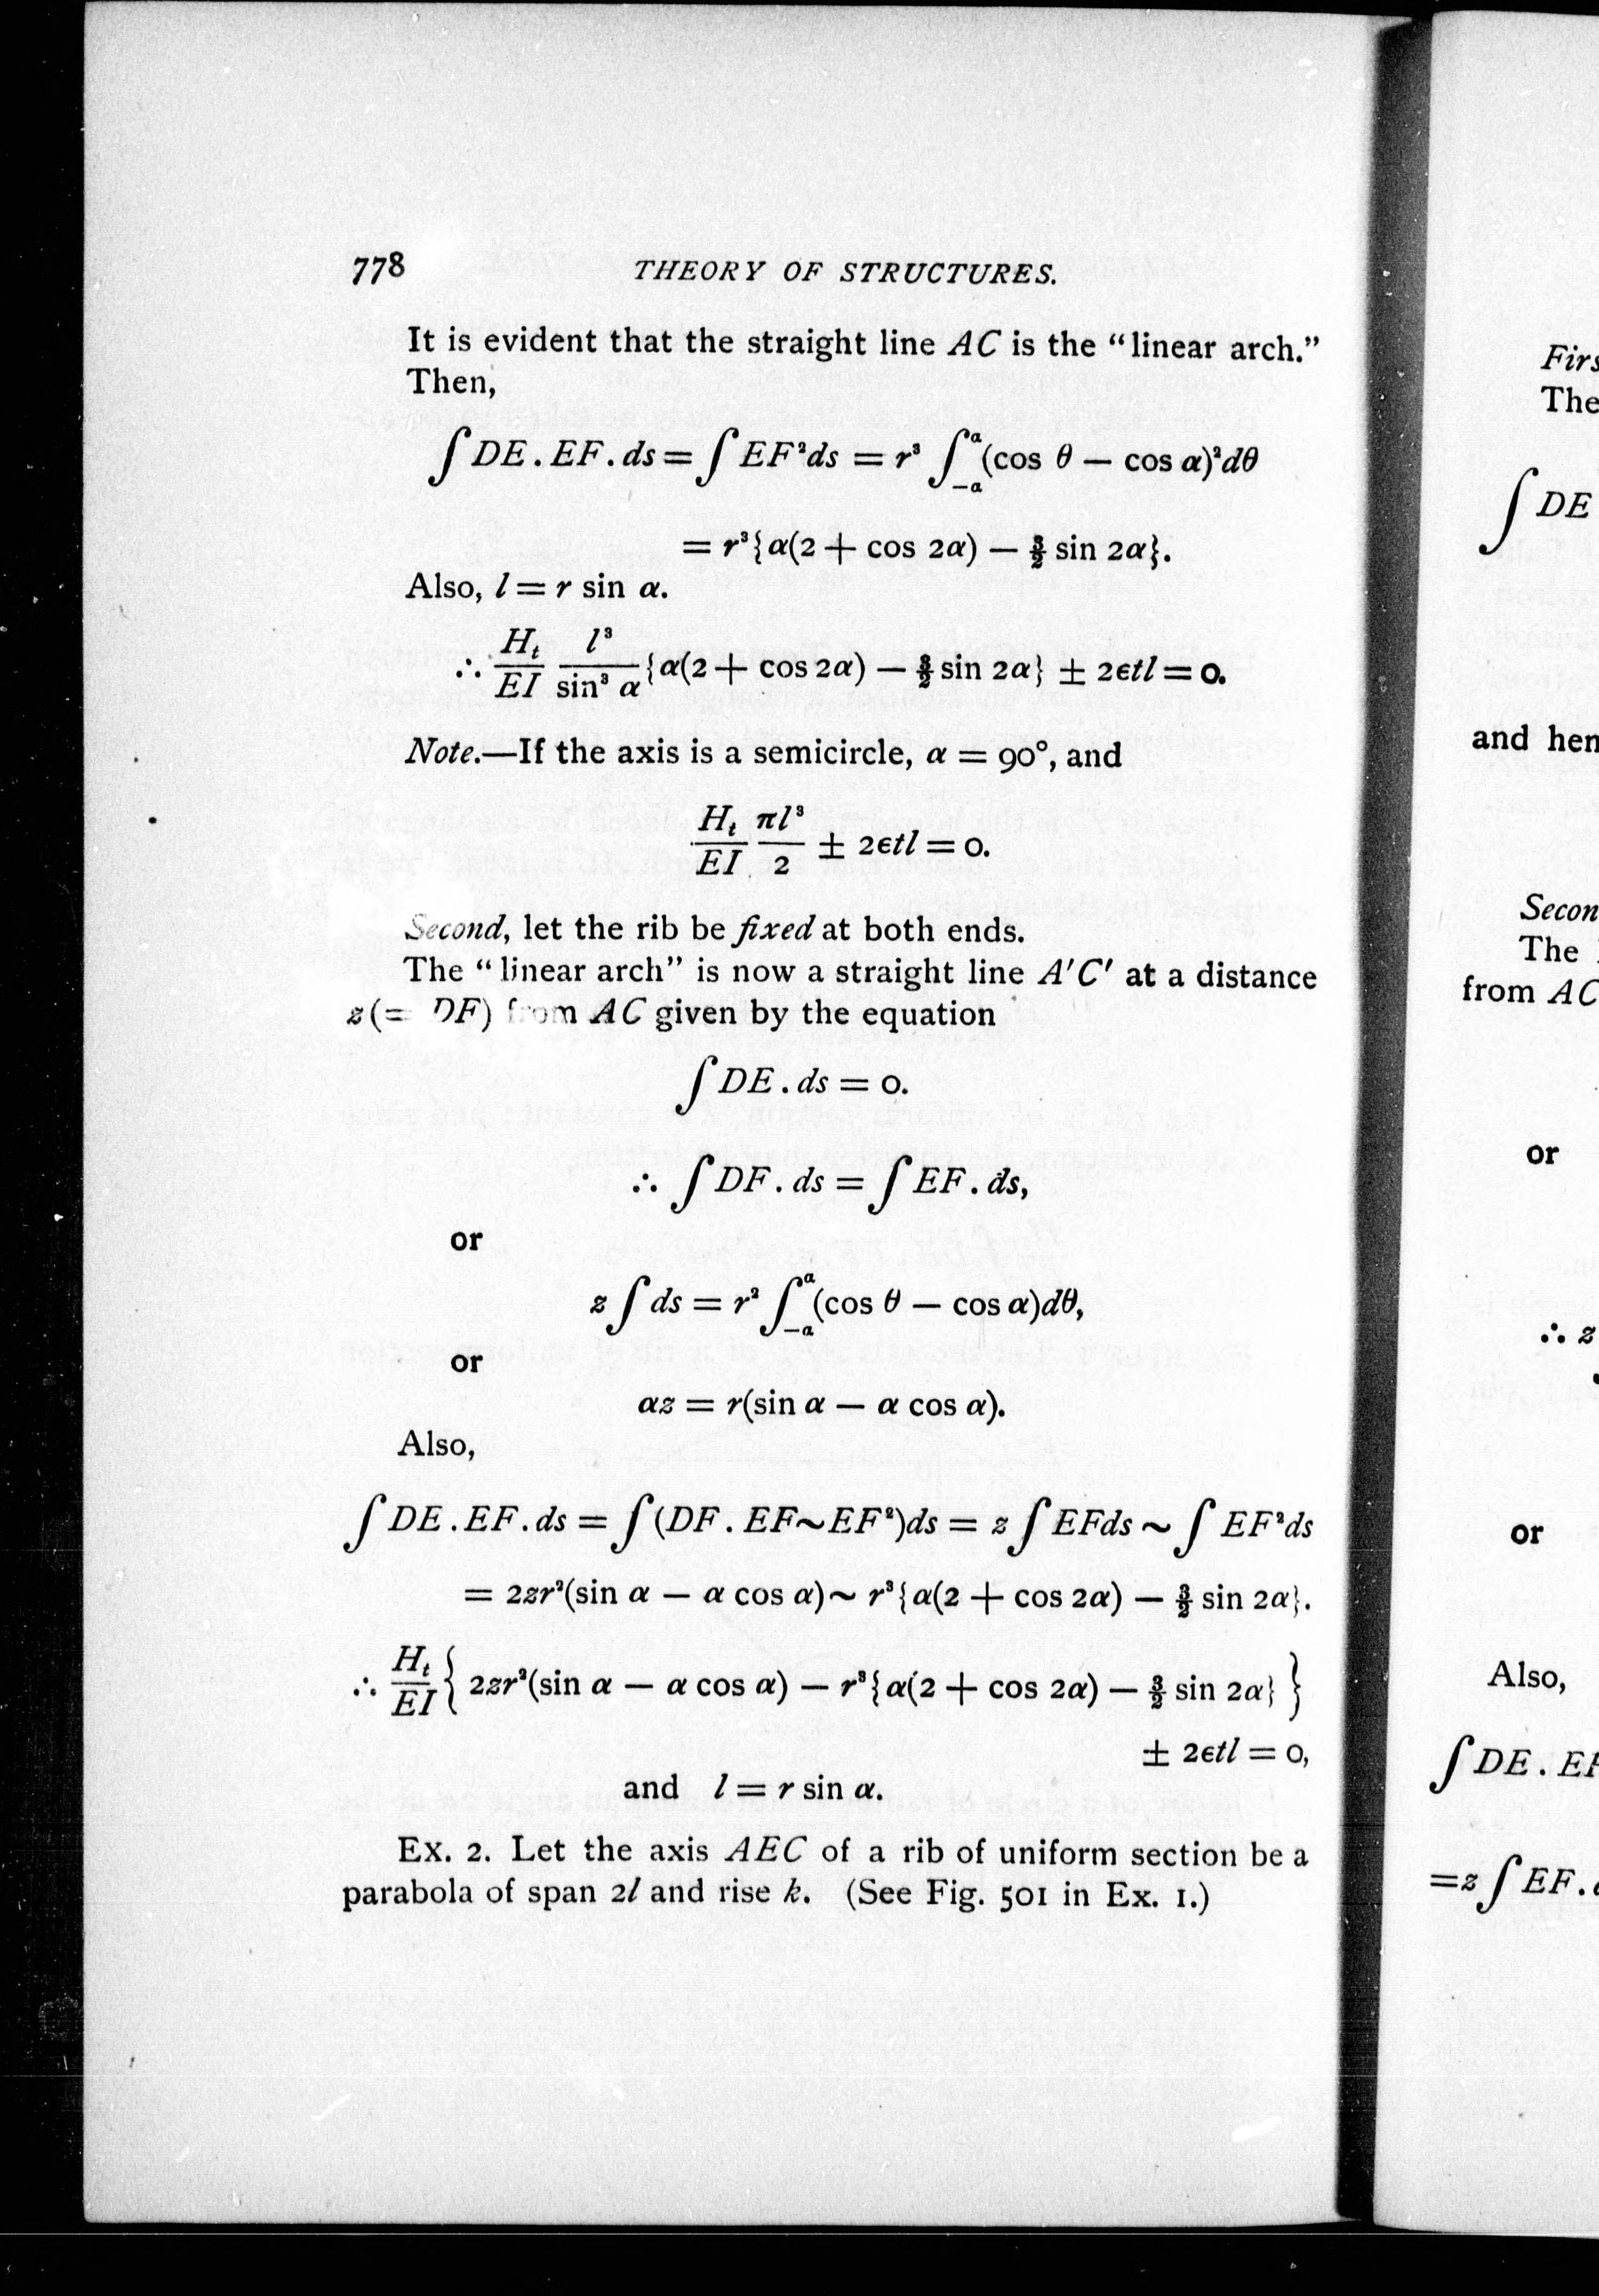 778 THEORY OF STRUCTURES.
It is evident that the straight line AC is the “linear arch.”
Then,
∫DE.EF.ds = ∫EF²ds = r³ ∫_{-α}^{α}(cos θ — cos α)²dθ
= r³{α(2 + cos 2α) — 3/2 sin 2α}.
Also, l = r sin α.
∴ H_t/EI l³/sin³ α {α(2 + cos 2α) — 3/2 sin 2α} ± 2εtl = 0.
Note.—If the axis is a semicircle, α = 90°, and
H_t/EI πl³/2 ± 2εtl = 0.
Second, let the rib be fixed at both ends.
The “linear arch” is now a straight line A′C′ at a distance
z(= DF) from AC given by the equation
∫DE.ds = 0.
∴ ∫DF.ds = ∫EF.ds,
or
z∫ds = r² ∫_{-α}^{α}(cos θ — cos α)dθ,
or
αz = r(sin α — α cos α).
Also,
∫DE.EF.ds = ∫(DF.EF~EF²)ds = z∫EFds ~ ∫EF²ds
= 2zr²(sin α — α cos α)~ r³{α(2 + cos 2α) — 3/2 sin 2α}.
∴ H_t/EI { 2zr²(sin α — α cos α) — r³{α(2 + cos 2α) — 3/2 sin 2α} }
± 2εtl = 0,
and l = r sin α.
Ex. 2. Let the axis AEC of a rib of uniform section be a
parabola of span 2l and rise k. (See Fig. 501 in Ex. 1.)
Firs
The
∫DE
and hen
Secon
The
from AC
or
∴ z
or
Also,
∫DE.EF
=z∫EF.